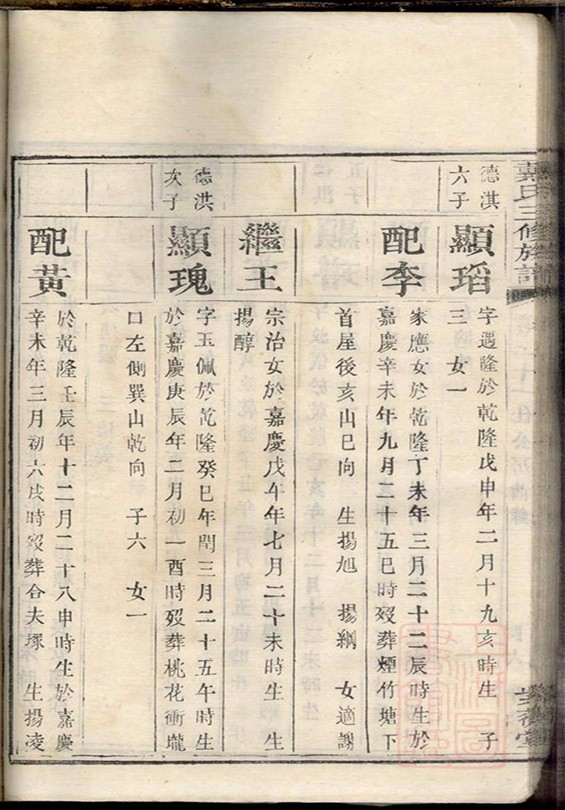 氏三修族譜
德洪
六子
顯瑫
字遇隆於乾隆戊申年二月十九亥時生 子
三 女一
配李
家應女於乾隆丁未年三月二十二辰時生於
嘉慶辛未年九月二十五巳時歿葬煙竹塘下
首屋後亥山巳向 生揚旭 揚綱 女適謝
繼王
宗治女於嘉慶戊午年七月二十未時生 生
揚醇
德洪
次子
顯瑰
字玉佩於乾隆癸巳年閏三月二十五午時生
於嘉慶庚辰年二月初一酉時歿葬桃花衝壠
口左側巽山乾向 子六 女一
配黃
於乾隆壬辰年十二月二十八申時生於嘉慶
辛未年三月初六戌時歿葬合夫塚 生揚凌